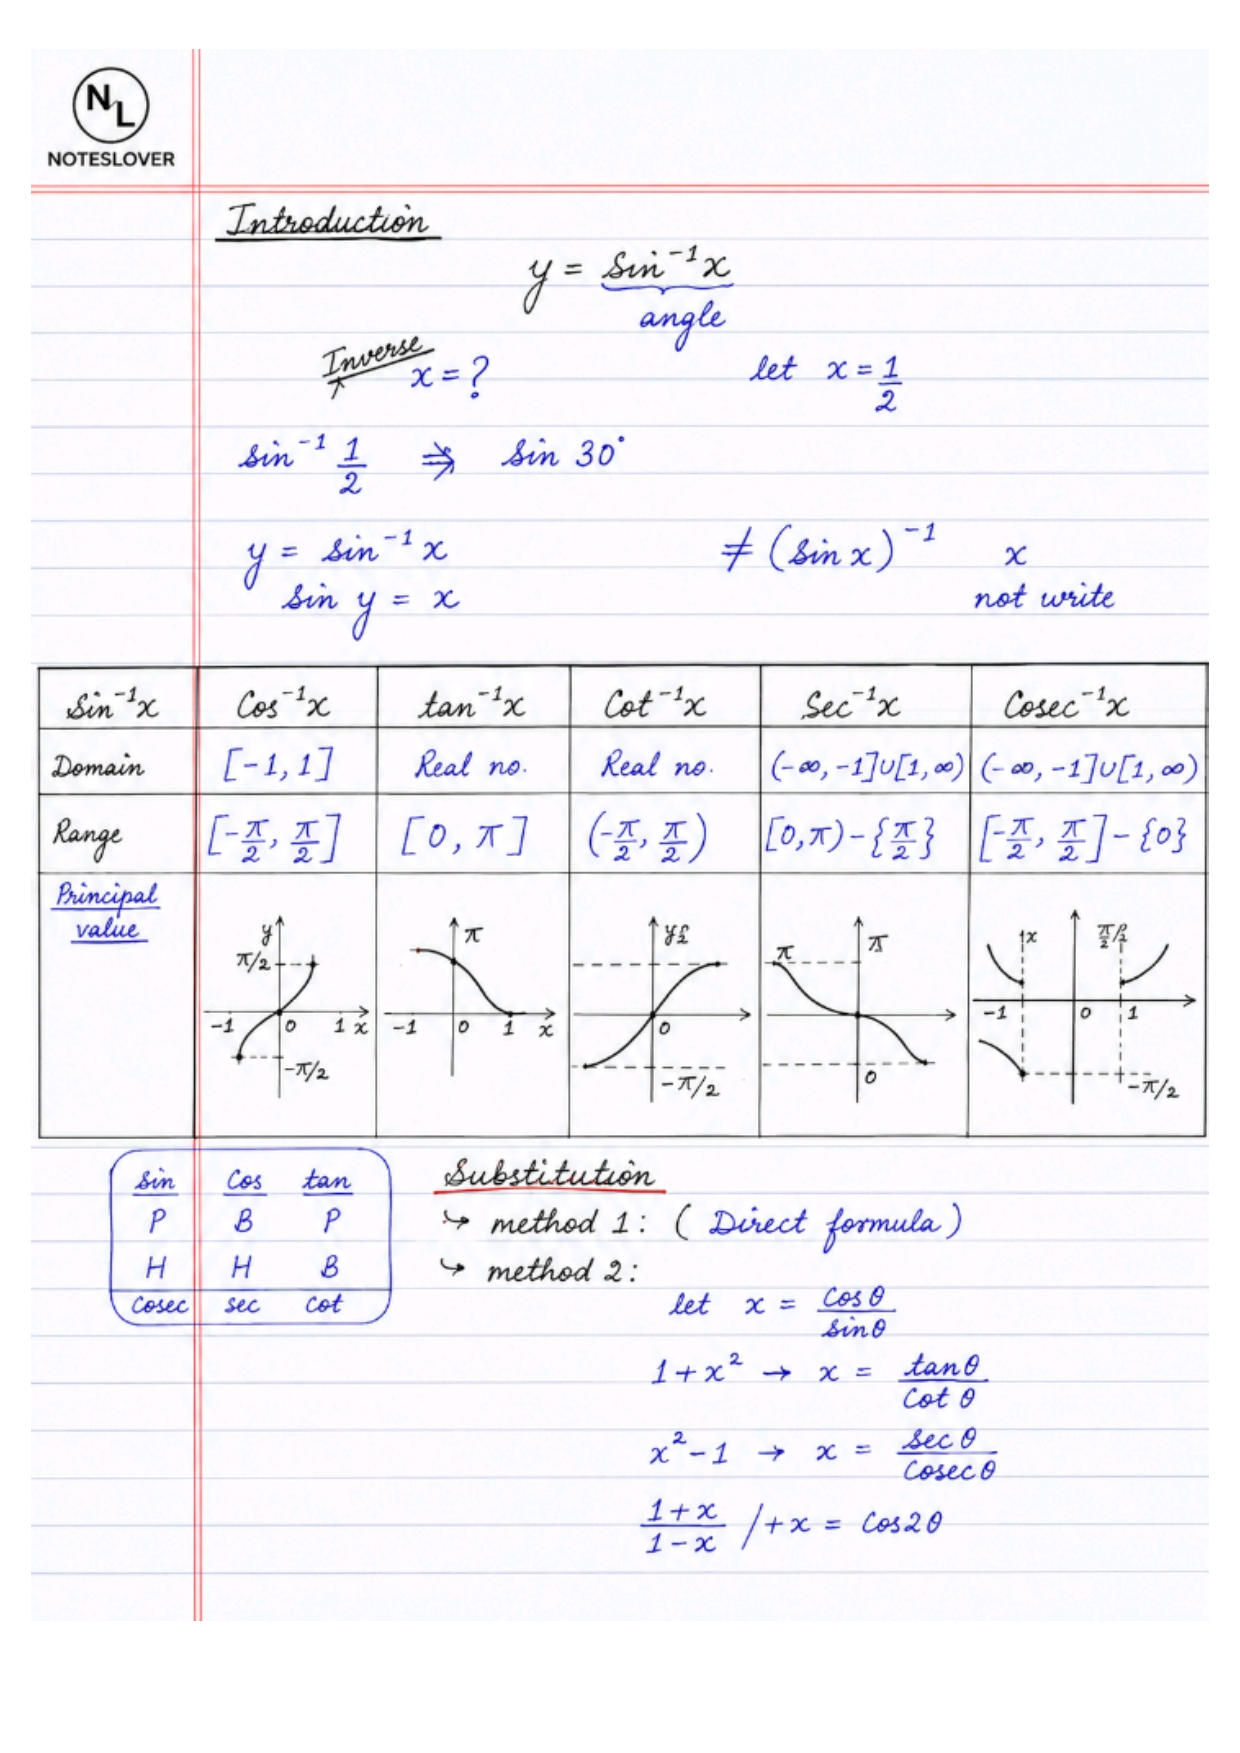 NL
NOTESLOVER
Introduction
y = sin⁻¹x
angle
Inverse
x = ?
let x = 1/2
sin⁻¹ 1/2 ⇒ sin 30°
y = sin⁻¹ x ≠ (sin x)⁻¹ x
sin y = x not write
Sin⁻¹x Cos⁻¹x tan⁻¹x Cot⁻¹x Sec⁻¹x Cosec⁻¹x
Domain [-1, 1] Real no. Real no. (-∞, -1]∪[1, ∞) (-∞, -1]∪[1, ∞)
Range [-π/2, π/2] [0, π] (-π/2, π/2) [0, π) - {π/2} [-π/2, π/2] - {0}
Principal
value
y π/2 -1 0 1 x -π/2
π -1 0 1 x
0 -π/2
π π 0
x -1 0 1 -π/2
sin cos tan
P B P
H H B
cosec sec cot
Substitution
↳ method 1: ( Direct formula )
↳ method 2:
let x = cosθ/sinθ
1 + x² → x = tanθ/cot θ
x² - 1 → x = sec θ/cosec θ
1+x/1-x /+x = cos2θ